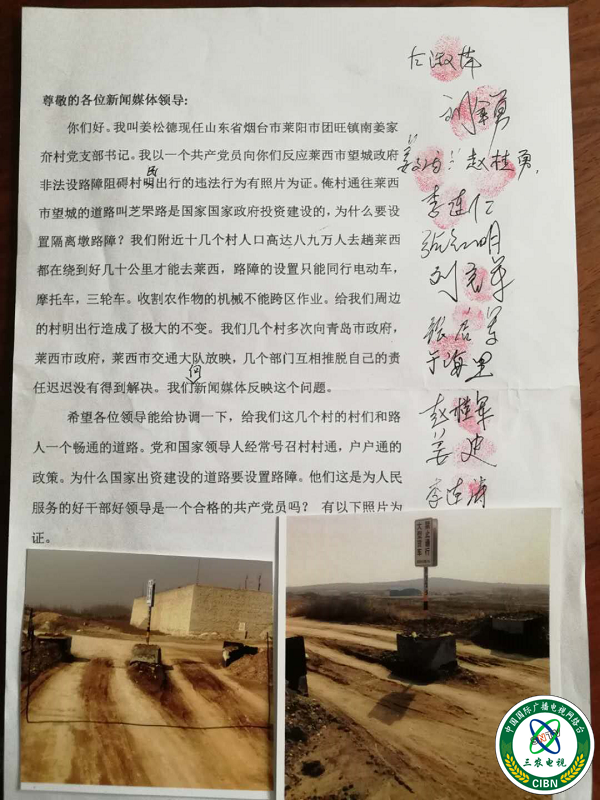 尊敬的各位新闻媒体领导：
你们好。我叫姜松德现任山东省烟台市莱阳市团旺镇南姜家
夼村党支部书记。我以一个共产党员向你们反应莱西市望城政府
非法设路障阻碍村民出行的违法行为有照片为证。俺村通往莱西
市望城的道路叫芝罘路是国家国家政府投资建设的，为什么要设
置隔离墩路障？我们附近十几个村人口高达八九万人去趟莱西
都在绕到好几十公里才能去莱西，路障的设置只能同行电动车，
摩托车，三轮车。收割农作物的机械不能跨区作业。给我们周边
的村明出行造成了极大的不变。我们几个村多次向青岛市政府，
莱西市政府，莱西市交通大队放映，几个部门互相推脱自己的责
任迟迟没有得到解决。我们向新闻媒体反映这个问题。
希望各位领导能给协调一下，给我们这几个村的村们和路
人一个畅通的道路。党和国家领导人经常号召村村通，户户通的
政策。为什么国家出资建设的道路要设置路障。他们这是为人民
服务的好干部好领导是一个合格的共产党员吗？ 有以下照片为
证。
赵桂勇
李连仁
张洪明
于海里
赵桂军
姜史
大型货车
禁止通行
中国国际广播电视网络台
三农电视
CIBN